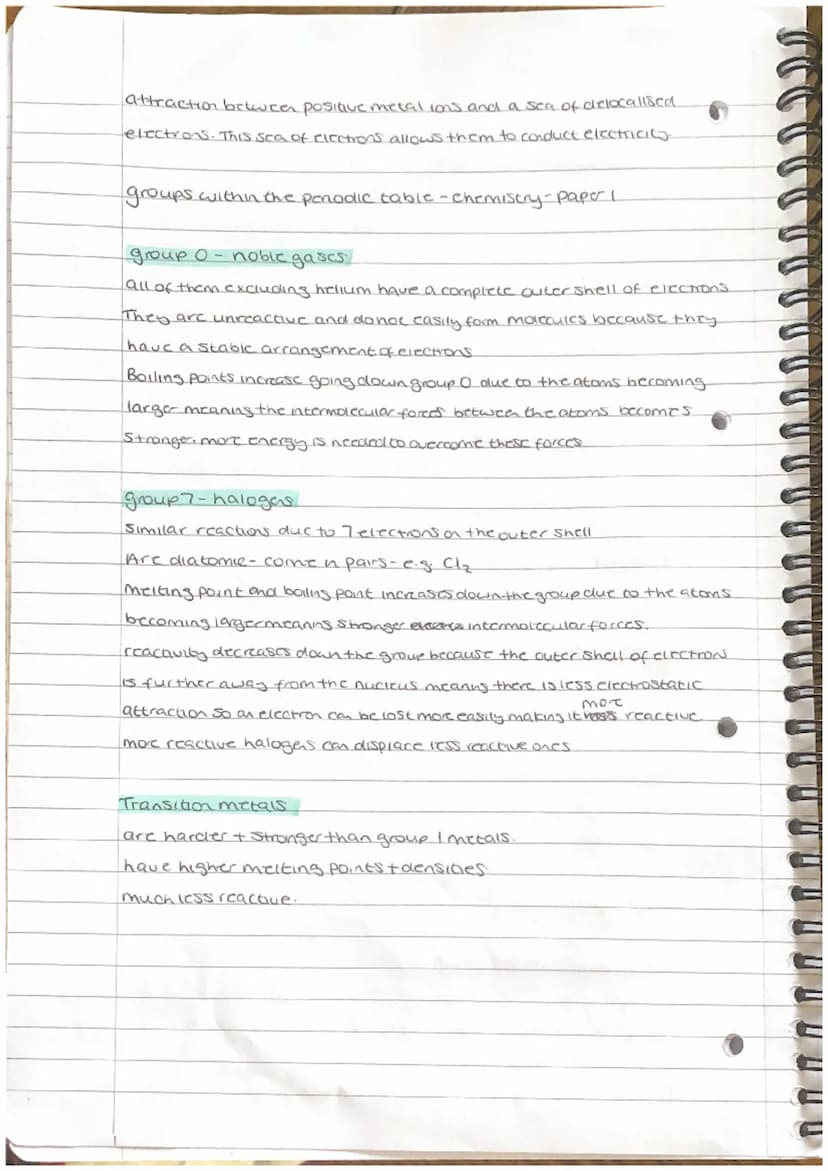 attraction between positive metal ions and a sea of delocalised
electrons. This sea of electrons allows them to conduct electricity.
groups within the periodic table - chemistry - paper 1
group 0 - noble gases
all of them excluding helium have a complete outer shell of electrons
They are unreactive and do not easily form molecules because they
have a stable arrangement of electrons
Boiling points increase going down group 0 due to the atoms becoming
larger meaning the intermolecular forces between the atoms becomes
stronger. more energy is needed to overcome these forces
group 7 - halogens
similar reactions due to 7 electrons on the outer shell
Are diatomic - come n pairs - e.g. Cl₂
melting point and boiling point increases down the group due to the atoms
becoming larger meaning stronger intermolecular forces.
reactivity decreases down the group because the outer shell of electron
is further away from the nucleus meaning there is less electrostatic
attraction so an electron can be lost more easily making it more reactive
more reactive halogens can displace less reactive ones
Transition metals
are harder + stronger than group 1 metals.
have higher melting points + densities
much less reactive.